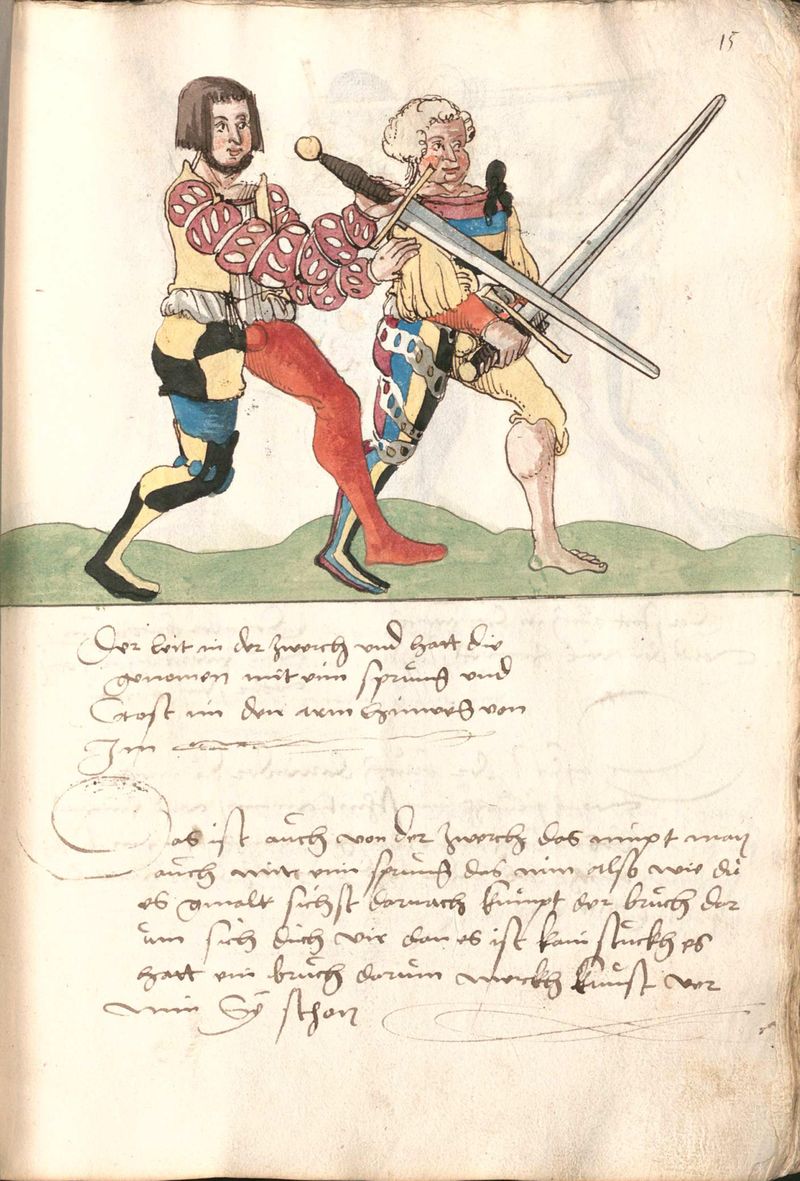 15
Der leit in der zwerch und hatt die
genomen mit eim sprüng und
Stost im den arm hinweg von
Im
Das ist aüch von der zwerch das nimpt man
aüch mit eim sprüng das nim also wie dü
es gmalt sichst darnach kümpt der brüch dar
üm sich dich vir dan es ist kain stückh es
hatt ein brüch darüm merckh künst ver
nim Sÿ schon